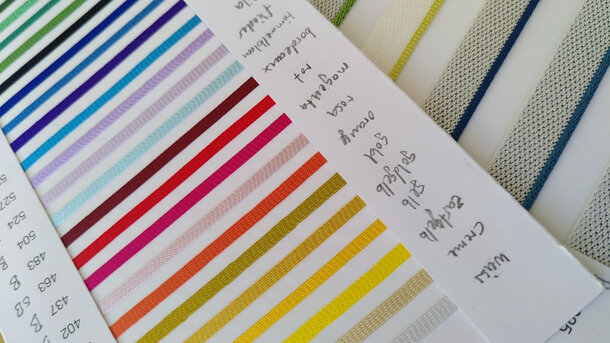 flieder
himmelblau
bordeaux
rot
magenta
rosa
orang
gold
goldgelb
gelb
zartgelb
Creme
weiß
527
524
504 B
483 B
463 SB
437 B
402 B